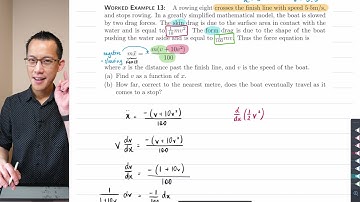 WORKED EXAMPLE 13: A rowing eight crosses the finish line with speed 5 m/s,
and stops rowing. In a greatly simplified mathematical model, the boat is slowed
by two drag forces. The skin drag is due to the surface area in contact with the
water and is equal to The form drag is due to the shape of the boat
pushing the water aside and is equal to Thus the force equation is
mẍ = −m(v + 10v²) / 100
where x is the distance past the finish line, and v is the speed of the boat.
(a) Find v as a function of x.
(b) How far, correct to the nearest metre, does the boat eventually travel as it
comes to a stop?
ẍ = −(v + 10v²) / 100
d/dx (½v²)
v dv/dx = −(v + 10v²) / 100
dv/dx = −(1 + 10v) / 100
1/(1+10v) dv = −1/100 dx